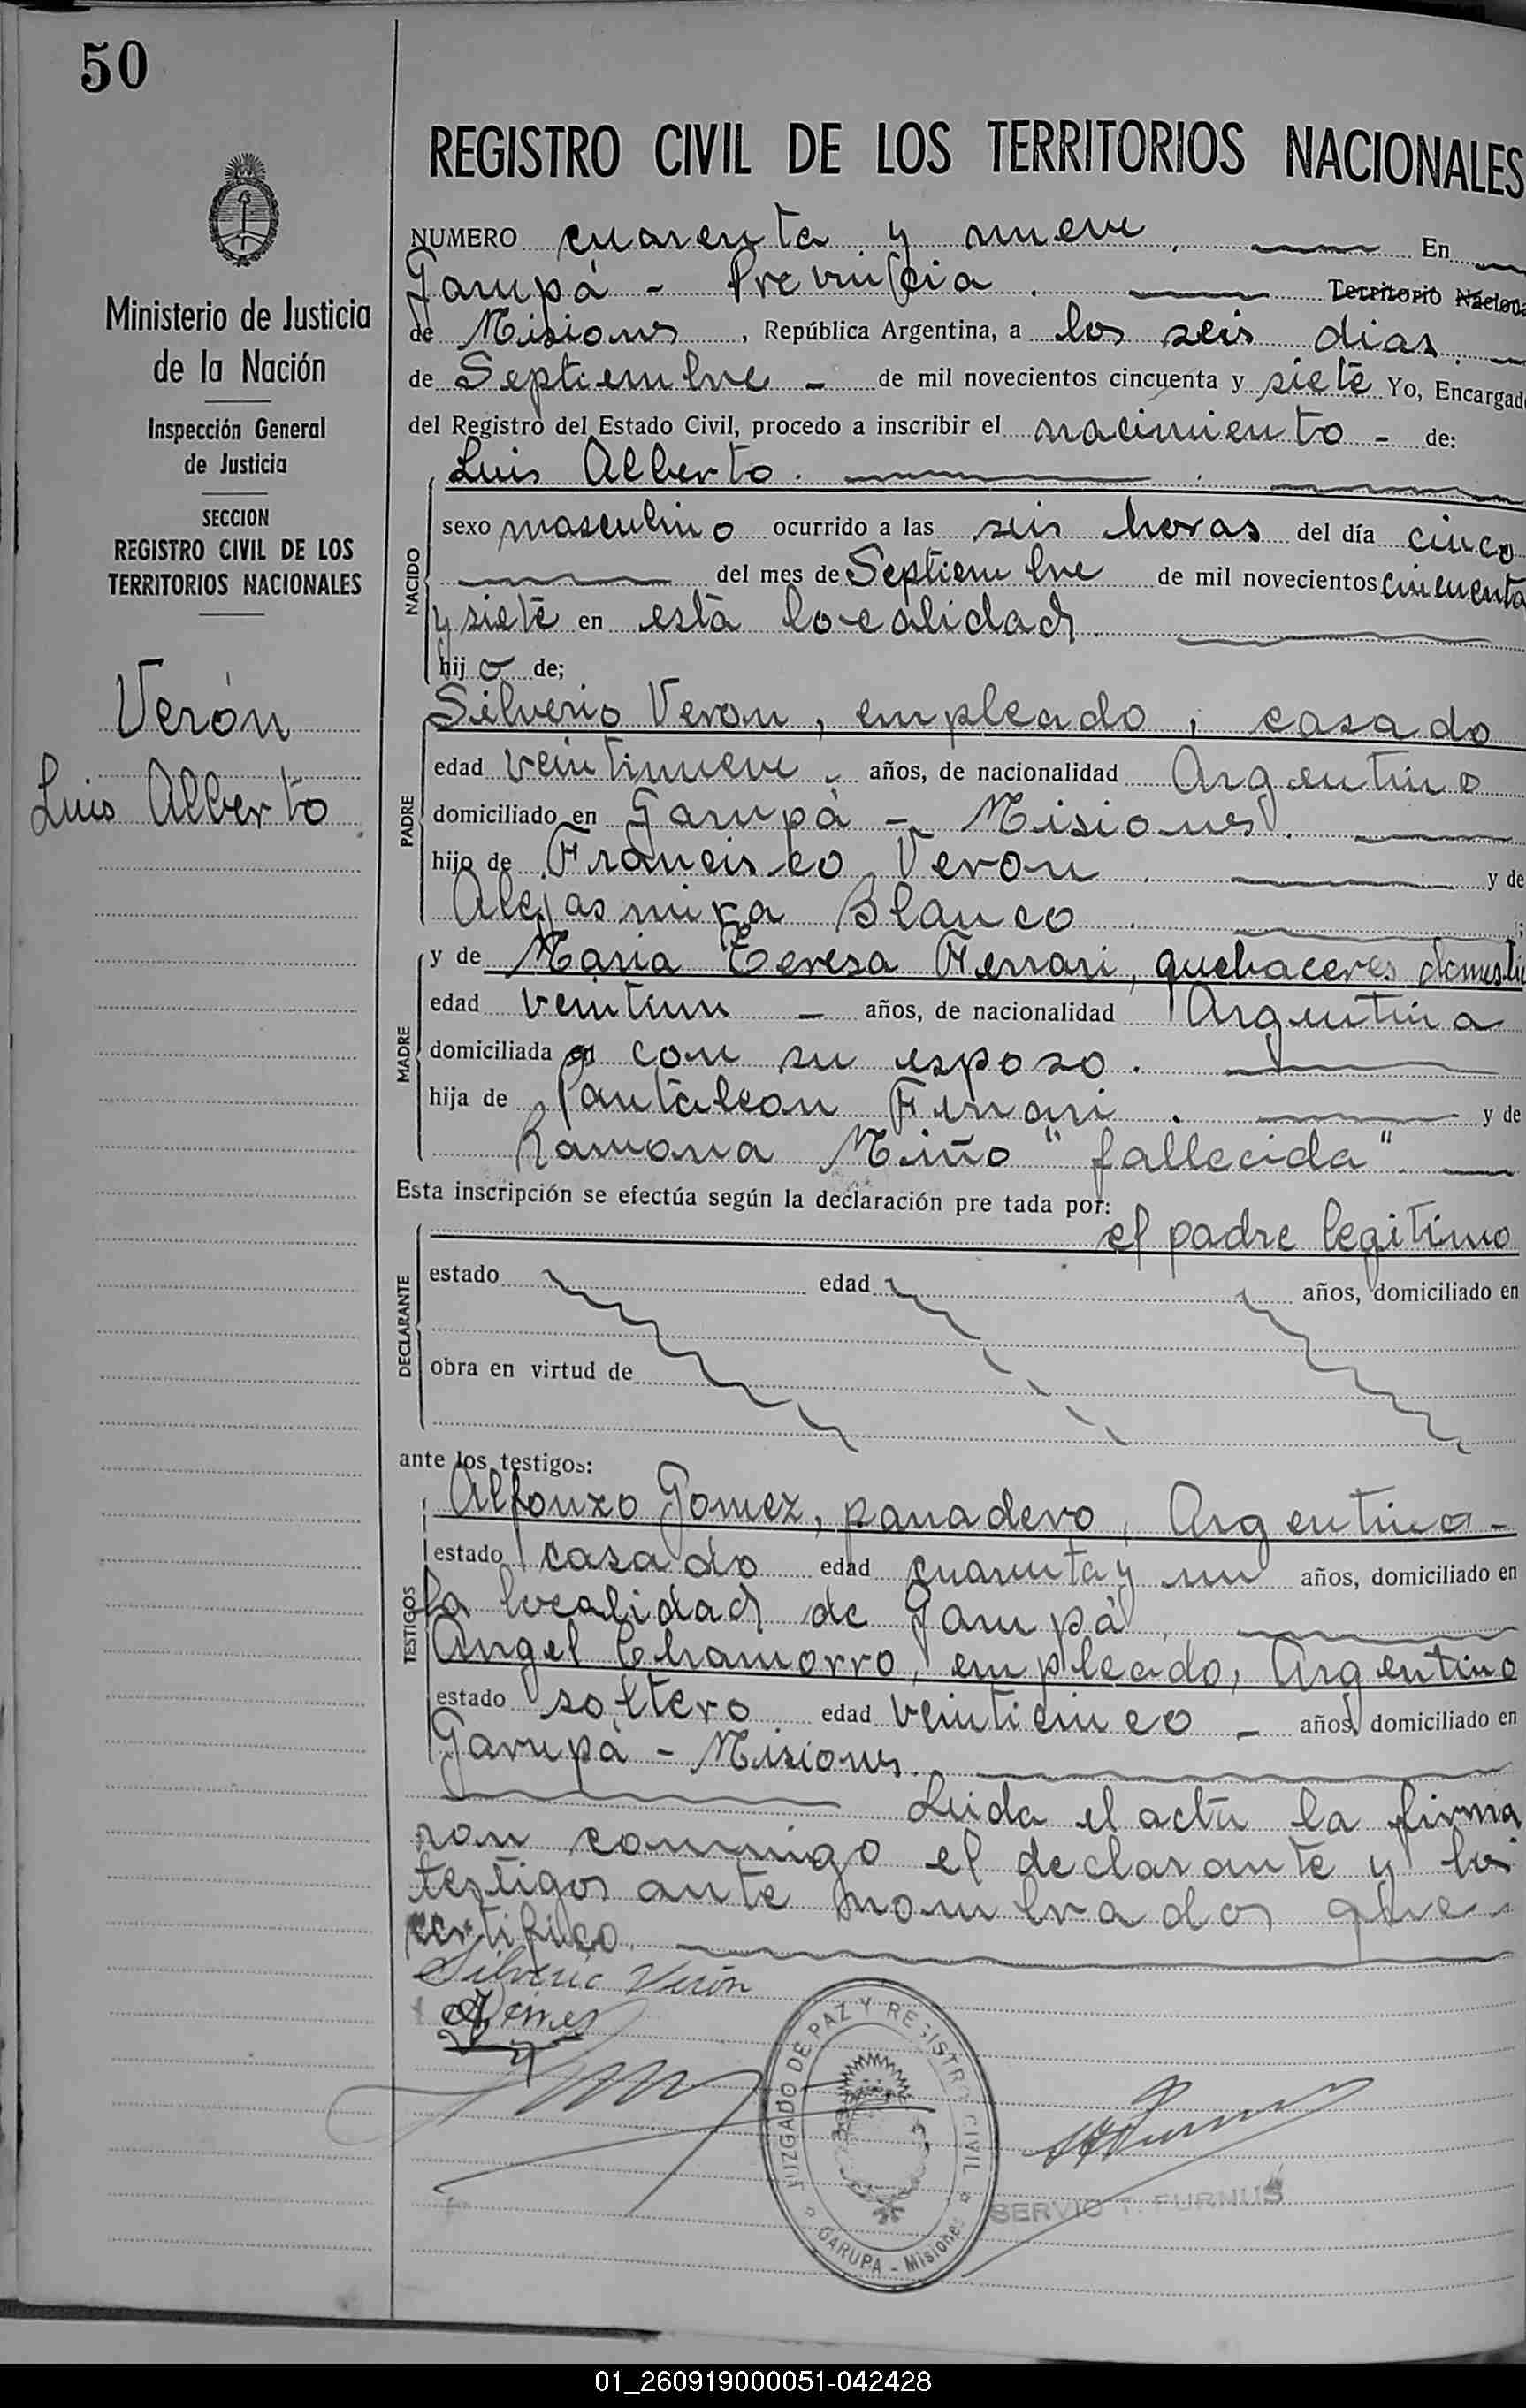 50
REGISTRO CIVIL DE LOS TERRITORIOS NACIONALES
Ministerio de Justicia
de la Nación
Inspección General
de Justicia
SECCION
REGISTRO CIVIL DE LOS
TERRITORIOS NACIONALES
Verón
Luis Alberto
NUMERO cuarenta y nueve. En
Garupá - Provincia. Territorio Nacional
de Misiones, República Argentina, a los seis dias.
de Septiembre - de mil novecientos cincuenta y siete Yo, Encargado
del Registro del Estado Civil, procedo a inscribir el nacimiento - de:
Luis Alberto.
NACIDO
sexo masculino ocurrido a las seis horas del día cinco
del mes de Septiembre de mil novecientos cincuenta
y siete en esta localidad.
hijo de;
PADRE
Silverio Veron, empleado, casado
edad veintinueve - años, de nacionalidad Argentino
domiciliado en Garupá - Misiones.
hijo de Francisco Veron. y de
Blanco.
MADRE
y de Maria Teresa Ferrari, quehaceres domestic
edad veintiun - años, de nacionalidad Argentina
domiciliada con su esposo.
hija de Pantaleon Ferrari. y de
Ramona Miño "fallecida".
Esta inscripción se efectúa según la declaración pre tada por:
el padre legitimo
DECLARANTE
estado edad años, domiciliado en
obra en virtud de
ante los testigos:
TESTIGOS
Alfonzo Gomez, panadero, Argentino -
estado casado edad cuarenta y un años, domiciliado en
la localidad de Garupá,
Angel Chamorro, empleado, Argentino
estado soltero edad veinticinco - años, domiciliado en
Garupá - Misiones.
Leida el acta la firma
ron conmigo el declarante y los
testigos ante nombrados que
certifico.
Silverio Verón
JUZGADO DE PAZ Y REGISTRO CIVIL
GARUPA - Misiones
SERVIO T. FURNUS
01_260919000051-042428